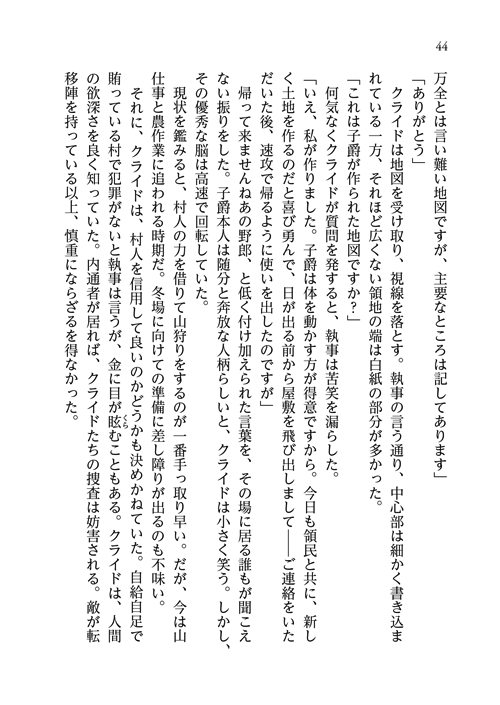 44
万全とは言い難い地図ですが、主要なところは記してあります」
「ありがとう」
クライドは地図を受け取り、視線を落とす。執事の言う通り、中心部は細かく書き込ま
れている一方、それほど広くない領地の端は白紙の部分が多かった。
「これは子爵が作られた地図ですか?」
何気なくクライドが質問を発すると、執事は苦笑を漏らした。
「いえ、私が作りました。子爵は体を動かす方が得意ですから。今日も領民と共に、新し
く土地を作るのだと喜び勇んで、日が出る前から屋敷を飛び出しまして――ご連絡をいた
だいた後、速攻で帰るように使いを出したのですが」
帰って来ませんねあの野郎、と低く付け加えられた言葉を、その場に居る誰もが聞こえ
ない振りをした。子爵本人は随分と奔放な人柄らしいと、クライドは小さく笑う。しかし、
その優秀な脳は高速で回転していた。
現状を鑑みると、村人の力を借りて山狩りをするのが一番手っ取り早い。だが、今は山
仕事と農作業に追われる時期だ。冬場に向けての準備に差し障りが出るのも不味い。
それに、クライドは、村人を信用して良いのかどうかも決めかねていた。自給自足で
賄っている村で犯罪がないと執事は言うが、金に目が眩むこともある。クライドは、人間
の欲深さを良く知っていた。内通者が居れば、クライドたちの捜査は妨害される。敵が転
移陣を持っている以上、慎重にならざるを得なかった。
くら